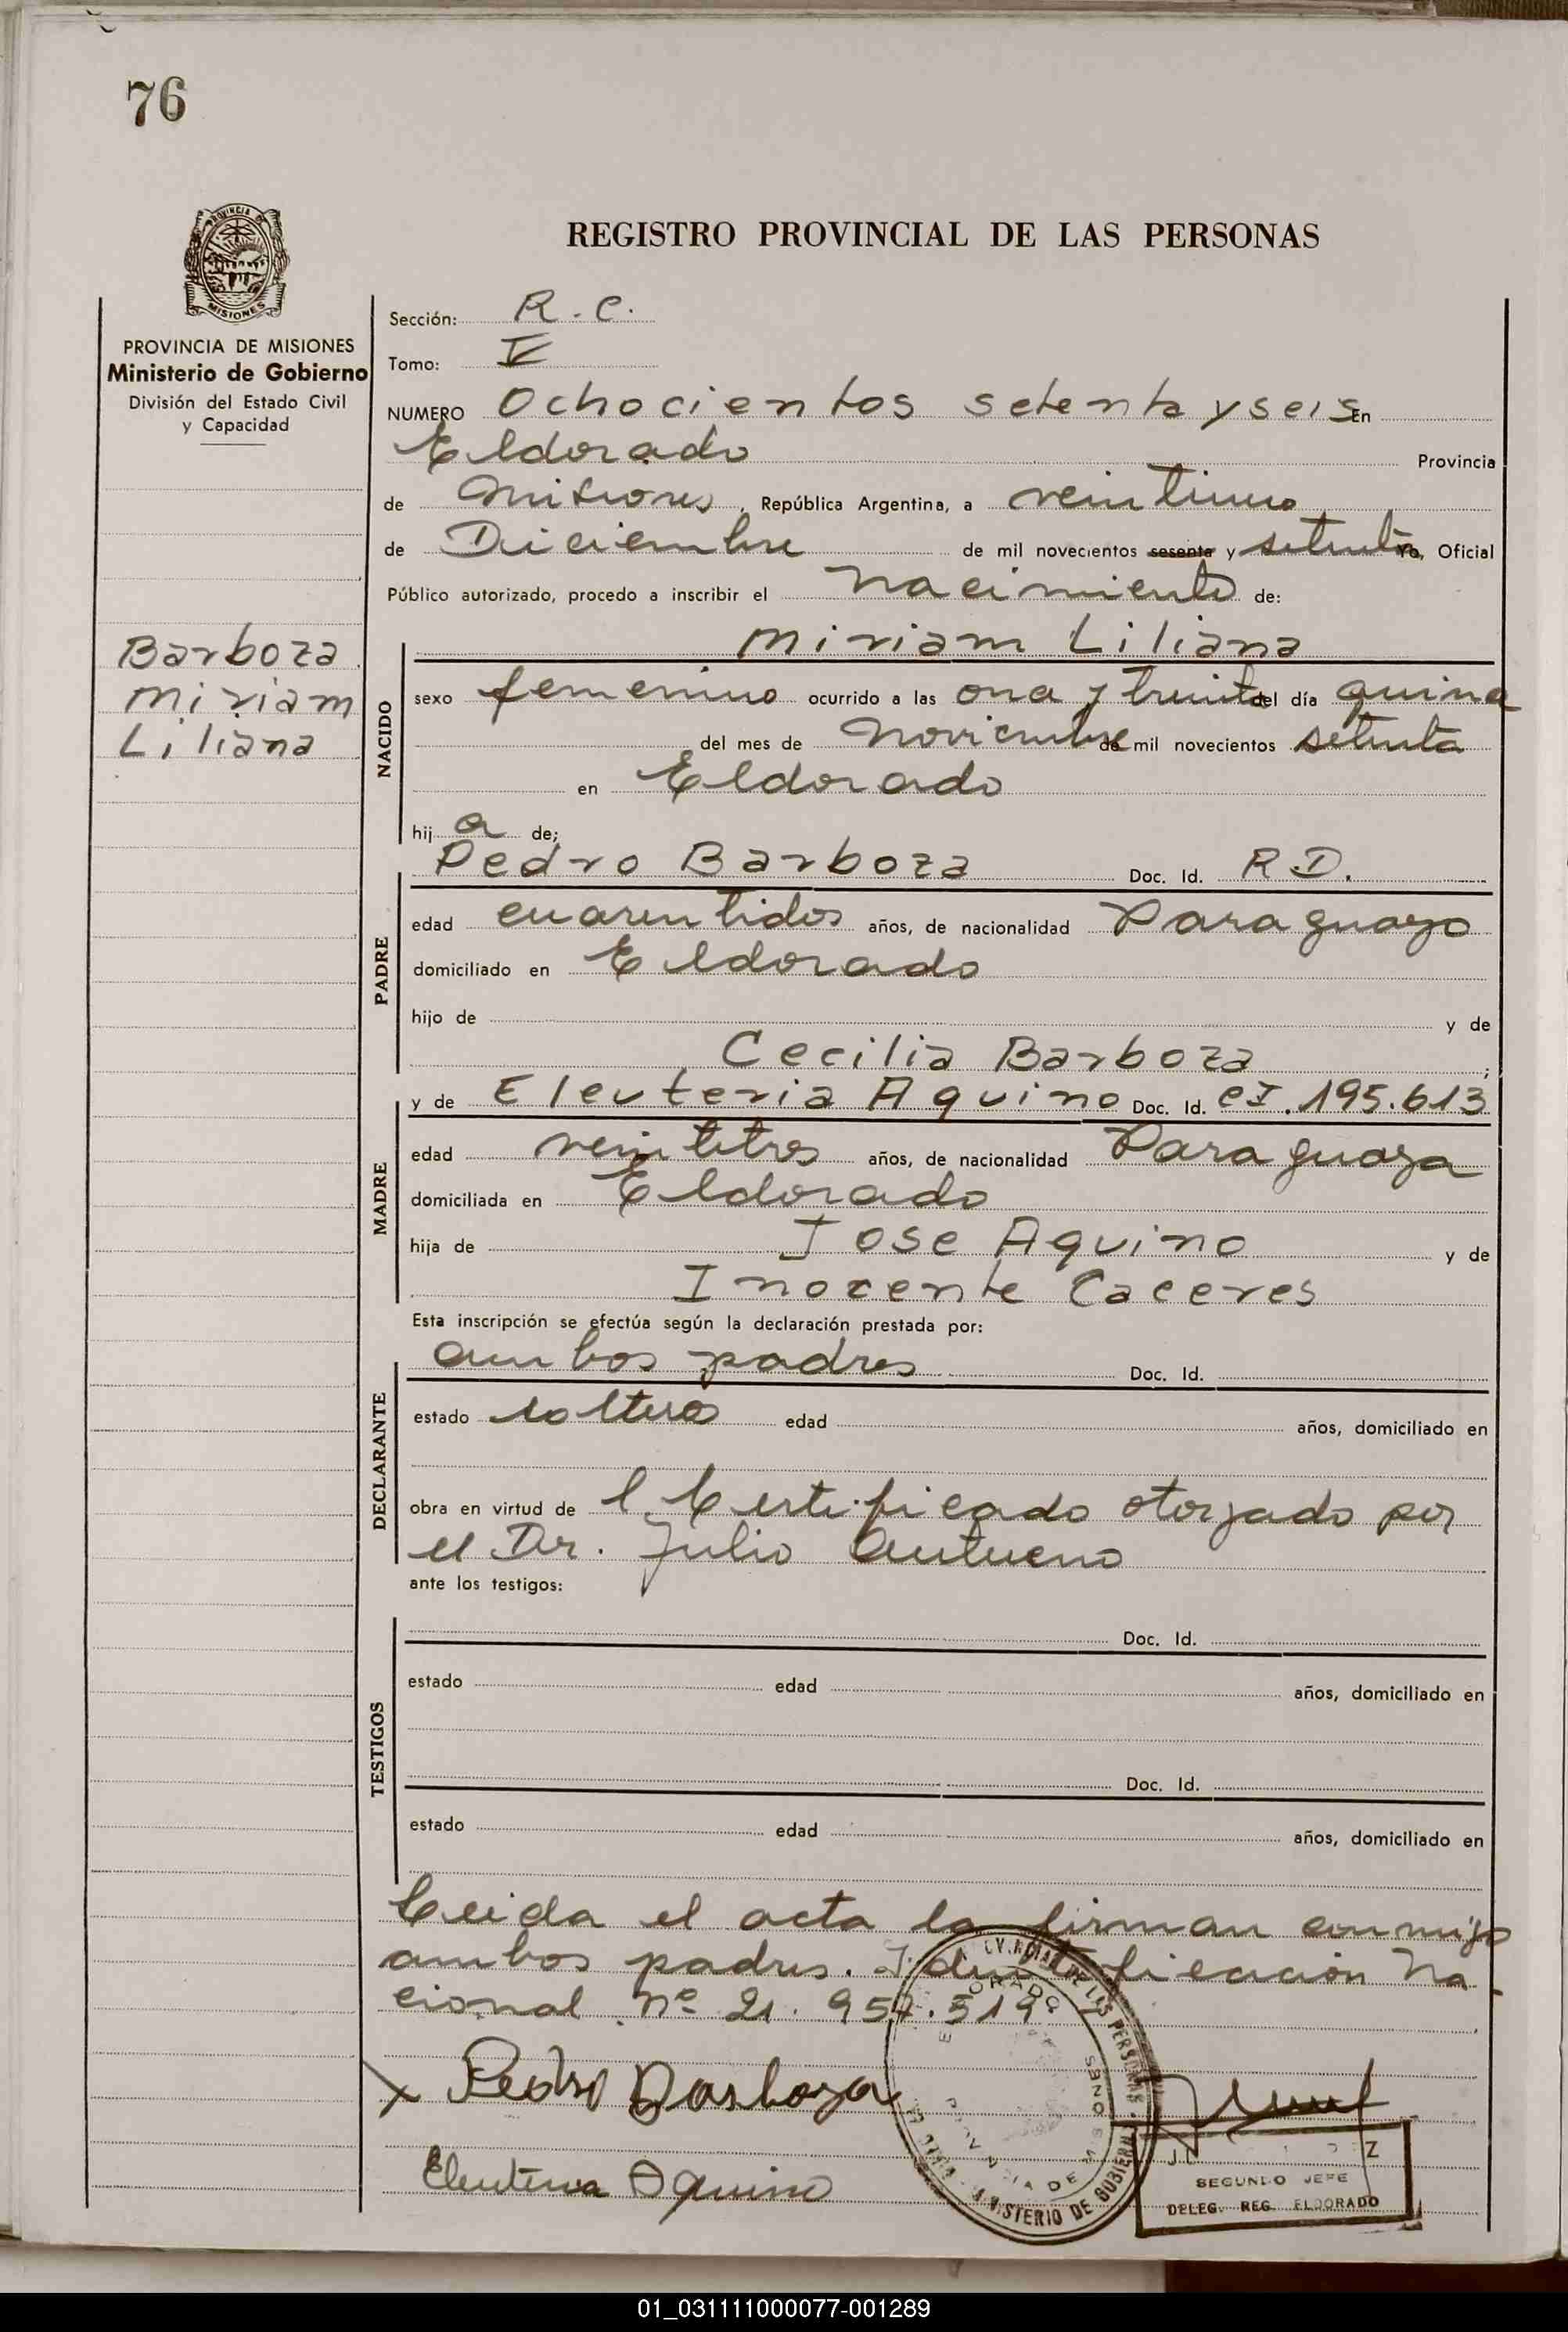 76
PROVINCIA DE
MISIONES
PROVINCIA DE MISIONES
Ministerio de Gobierno
División del Estado Civil
y Capacidad
Barboza
Miriam
Liliana
REGISTRO PROVINCIAL DE LAS PERSONAS
Sección: R.C.
Tomo: V
NUMERO Ochocientos setenta y seis En
Eldorado Provincia
de Misiones, República Argentina, a veintiuno
de Diciembre de mil novecientos sesenta y setenta Yo, Oficial
Público autorizado, procedo a inscribir el nacimiento de:
NACIDO
Miriam Liliana
sexo femenino ocurrido a las ona y treinta del día quince
del mes de Noviembre de mil novecientos setenta
en Eldorado
hij a de;
PADRE
Pedro Barboza Doc. Id. R.D.
edad cuarentidos años, de nacionalidad Paraguayo
domiciliado en Eldorado
hijo de y de
Cecilia Barboza ;
MADRE
y de Eleuteria Aquino Doc. Id. CI. 195.613
edad veintitres años, de nacionalidad Paraguaya
domiciliada en Eldorado
hija de Jose Aquino y de
Inocente Caceres
Esta inscripción se efectúa según la declaración prestada por:
DECLARANTE
ambos padres Doc. Id.
estado soltero edad años, domiciliado en
obra en virtud de l Certificado otorgado por
el Dr. Julio
ante los testigos:
TESTIGOS
Doc. Id.
estado edad años, domiciliado en
Doc. Id.
estado edad años, domiciliado en
Leida el acta la firman conmigo
ambos padres. Identificación Na
cional nº 21. 957.519
x Pedro Barboza
Eleuteria Aquino
SEGUNDO JEFE
DELEG. REG. ELDORADO
01_031111000077-001289